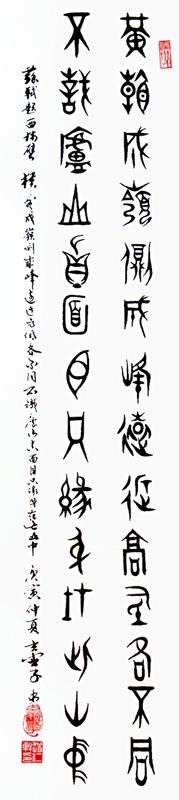 黃看成嶺側成峰遠近高氐各不同
不識盧山真面目只緣身在此山中
蘇軾題西林壁 橫看成嶺側成峰遠近高低各不同不識廬山真面目只緣身在此山中 庚寅仲夏